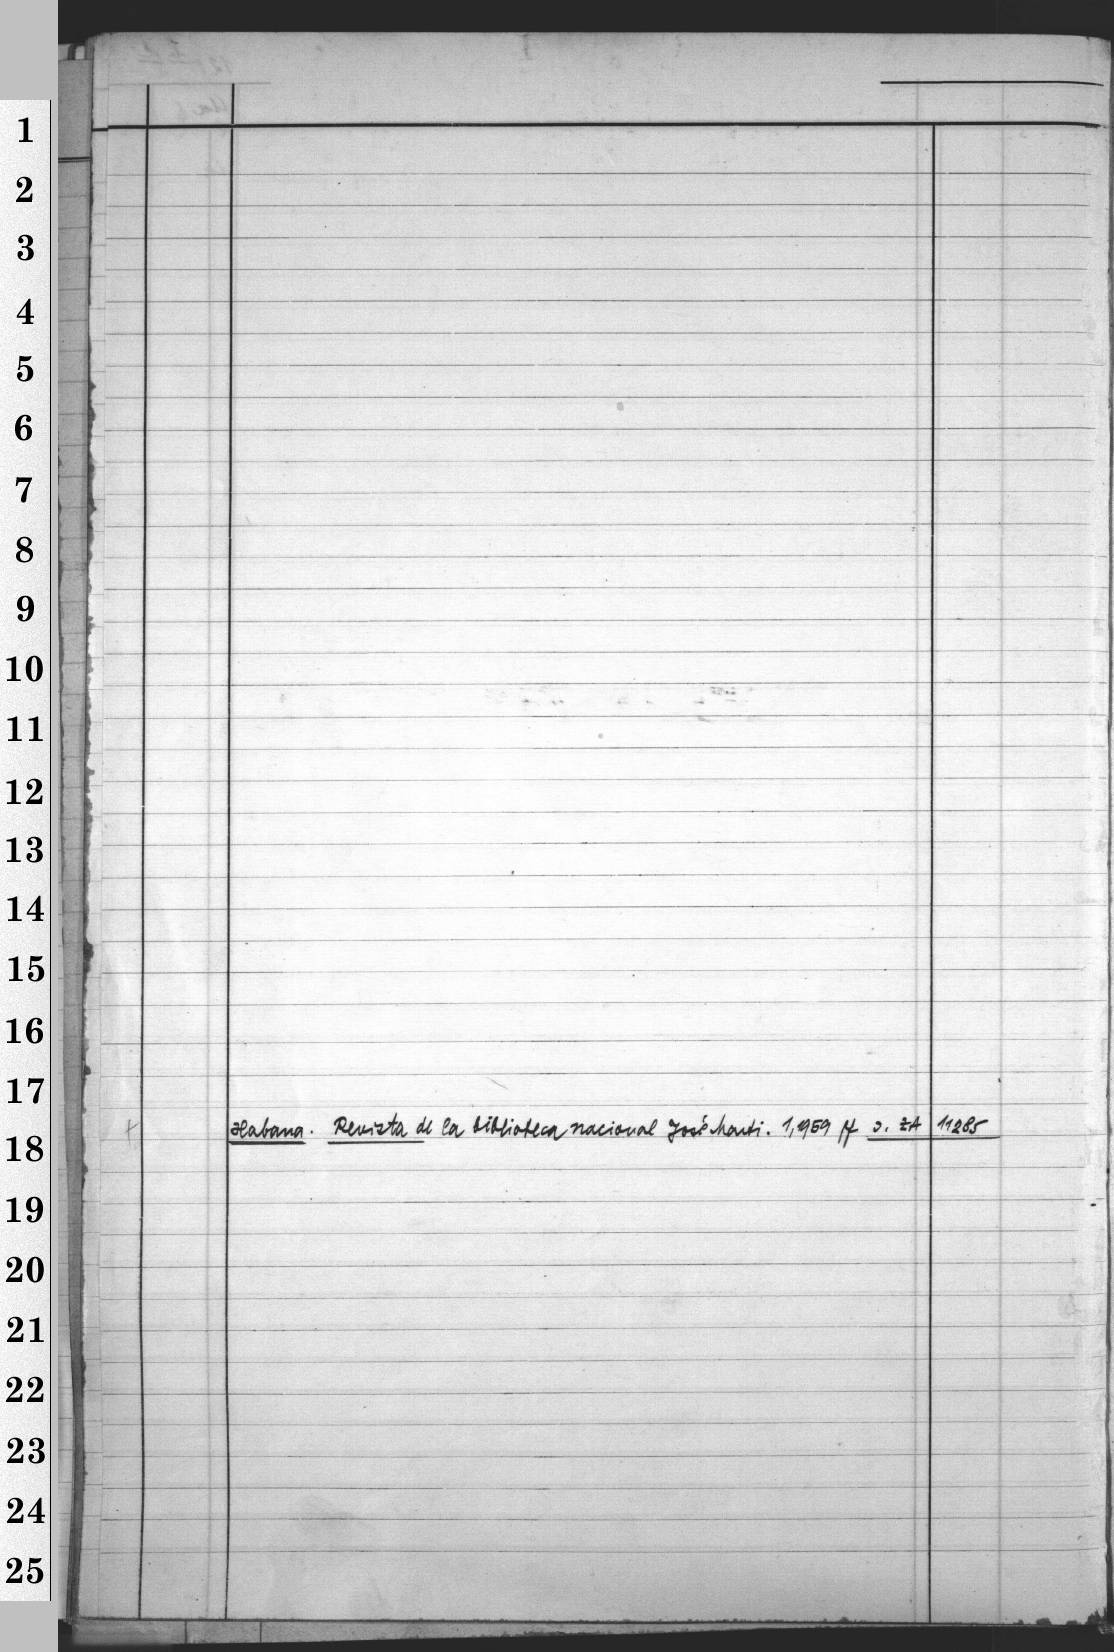 1
2
3
4
5
6
7
8
9
10
11
12
13
14
15
16
17
+ Habana. Revista de la biblioteca nacional José Marti. 1,1959 ff s. ZA 11285
18
19
20
21
22
23
24
25